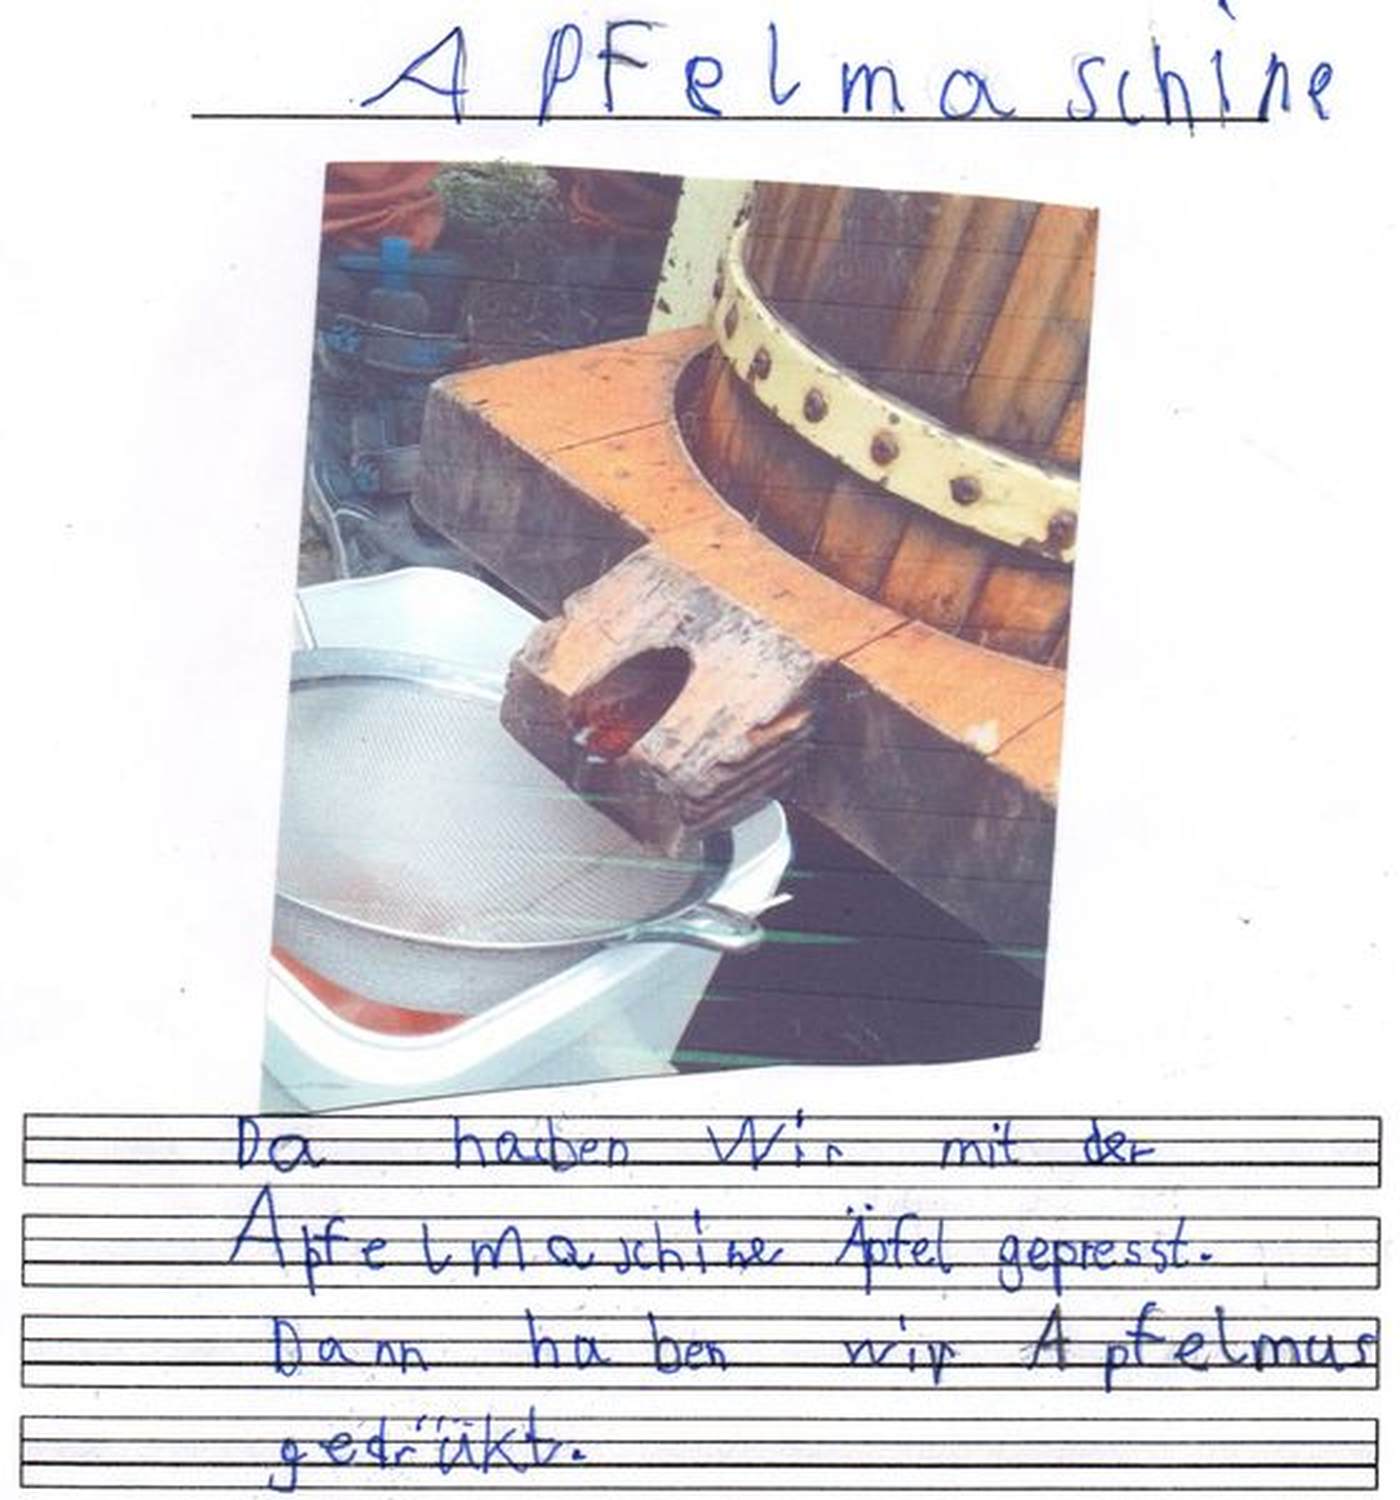 Apfelmaschine
Da haben Wir mit der
Apfelmaschine Äpfel gepresst.
Dann haben wir Apfelmus
gedrükt.